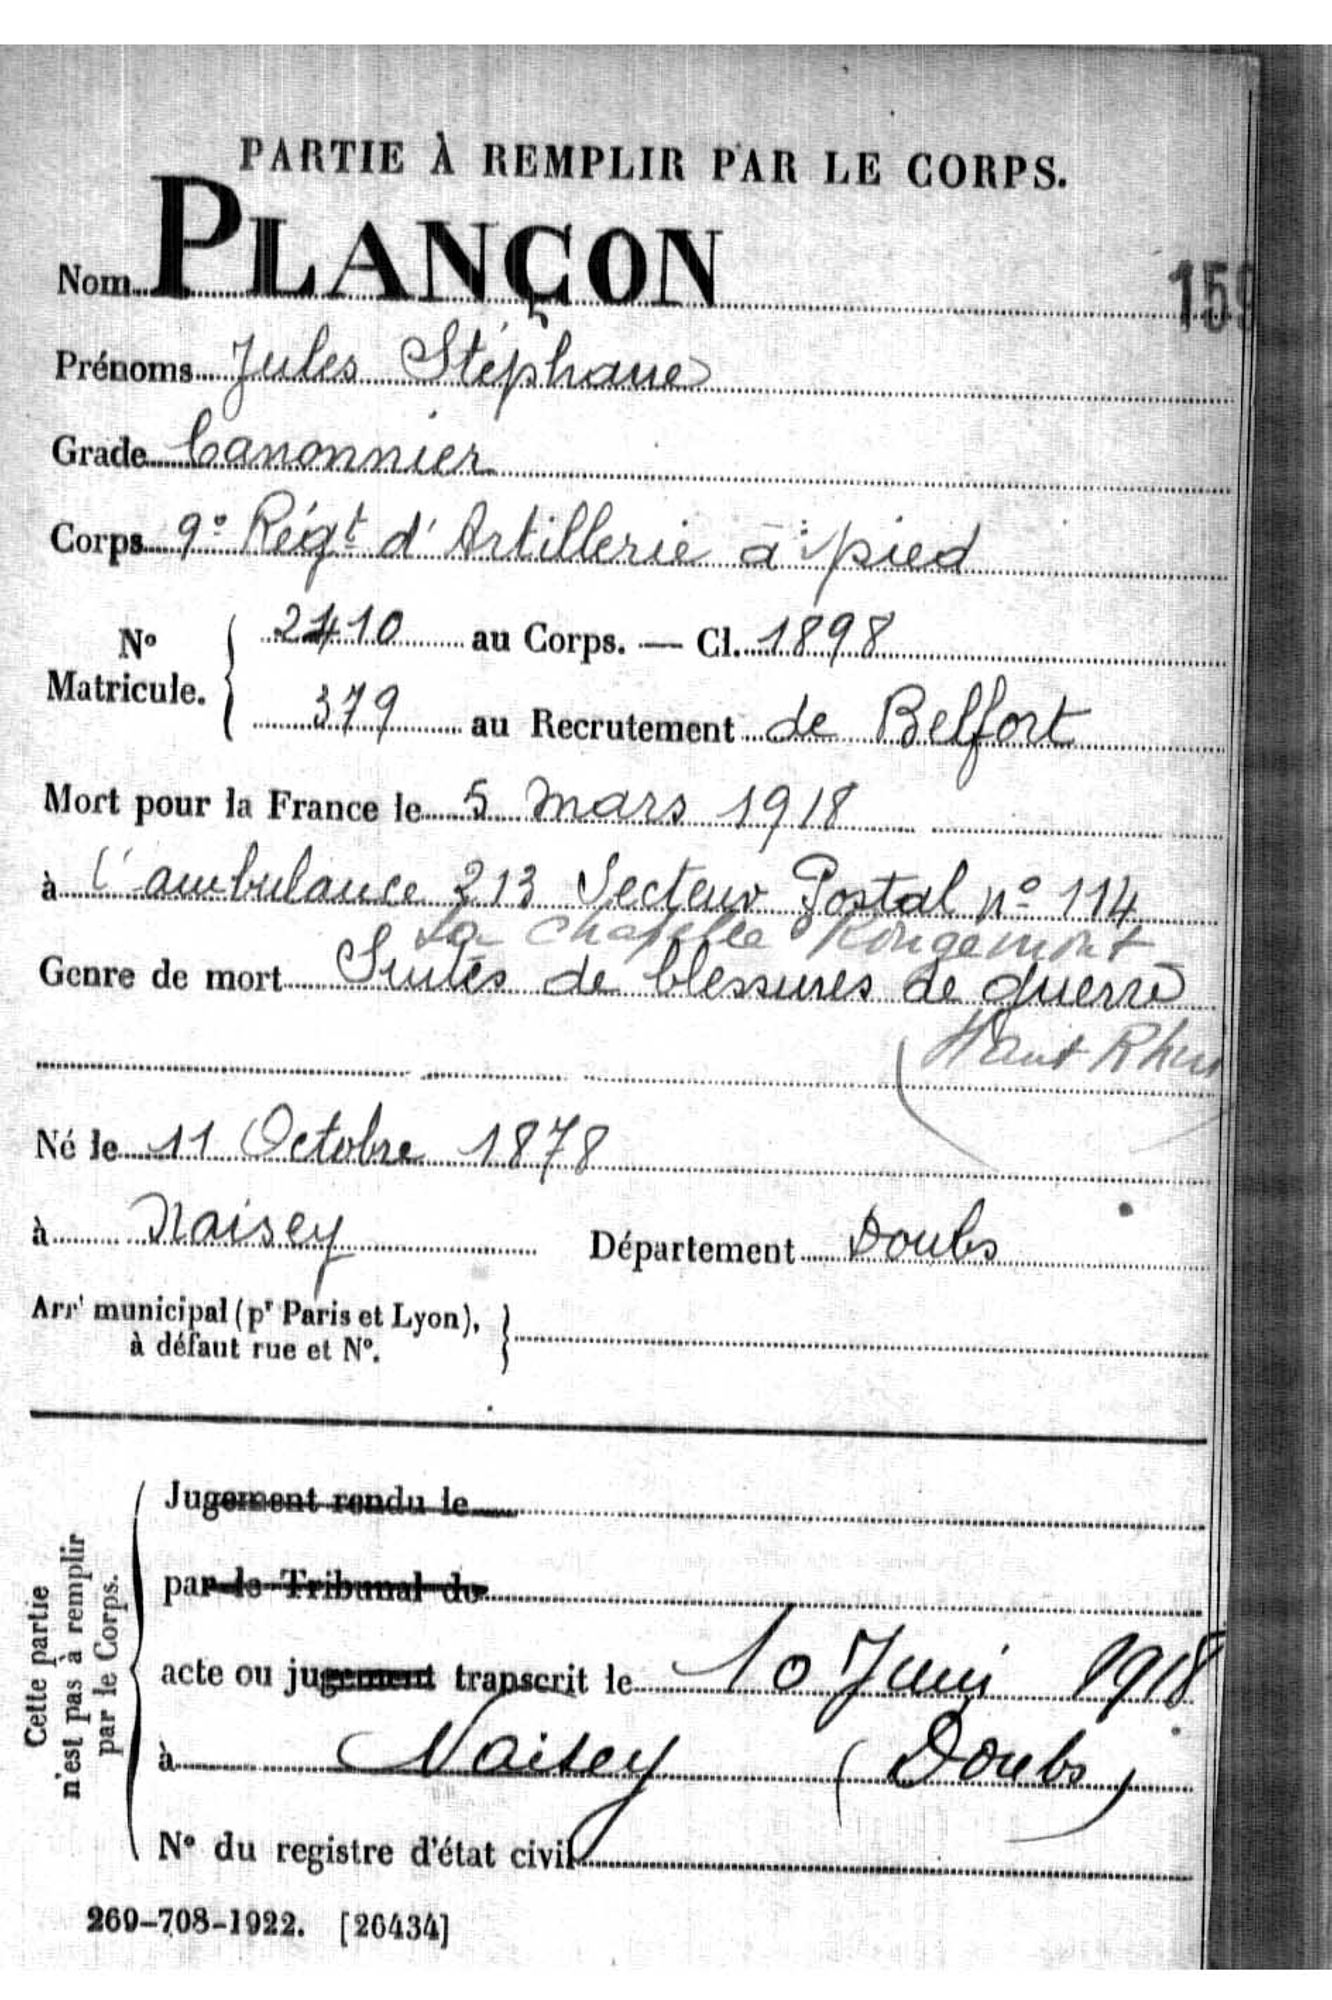 PARTIE À REMPLIR PAR LE CORPS.
Nom PLANÇON
159
Prénoms Jules Stéphane
Grade Canonnier
Corps 9e Régt d'Artillerie à pied
No Matricule. { 2410 au Corps. — Cl. 1898
379 au Recrutement de Belfort
Mort pour la France le 5 mars 1918
à l'ambulance 213 Secteur Postal no 114
La Chapelle s Rougemont
Genre de mort Suites de blessures de guerre
(Haut Rhin
Né le 11 Octobre 1878
à Naisey Département Doubs
Arrt municipal (pr Paris et Lyon), }
à défaut rue et No.
Cette partie
n'est pas à remplir
par le Corps.
Jugement rendu le
par le Tribunal de
acte ou jugement transcrit le 10 Juin 1918
à Naisey (Doubs)
No du registre d'état civil
269-708-1922. [26434]